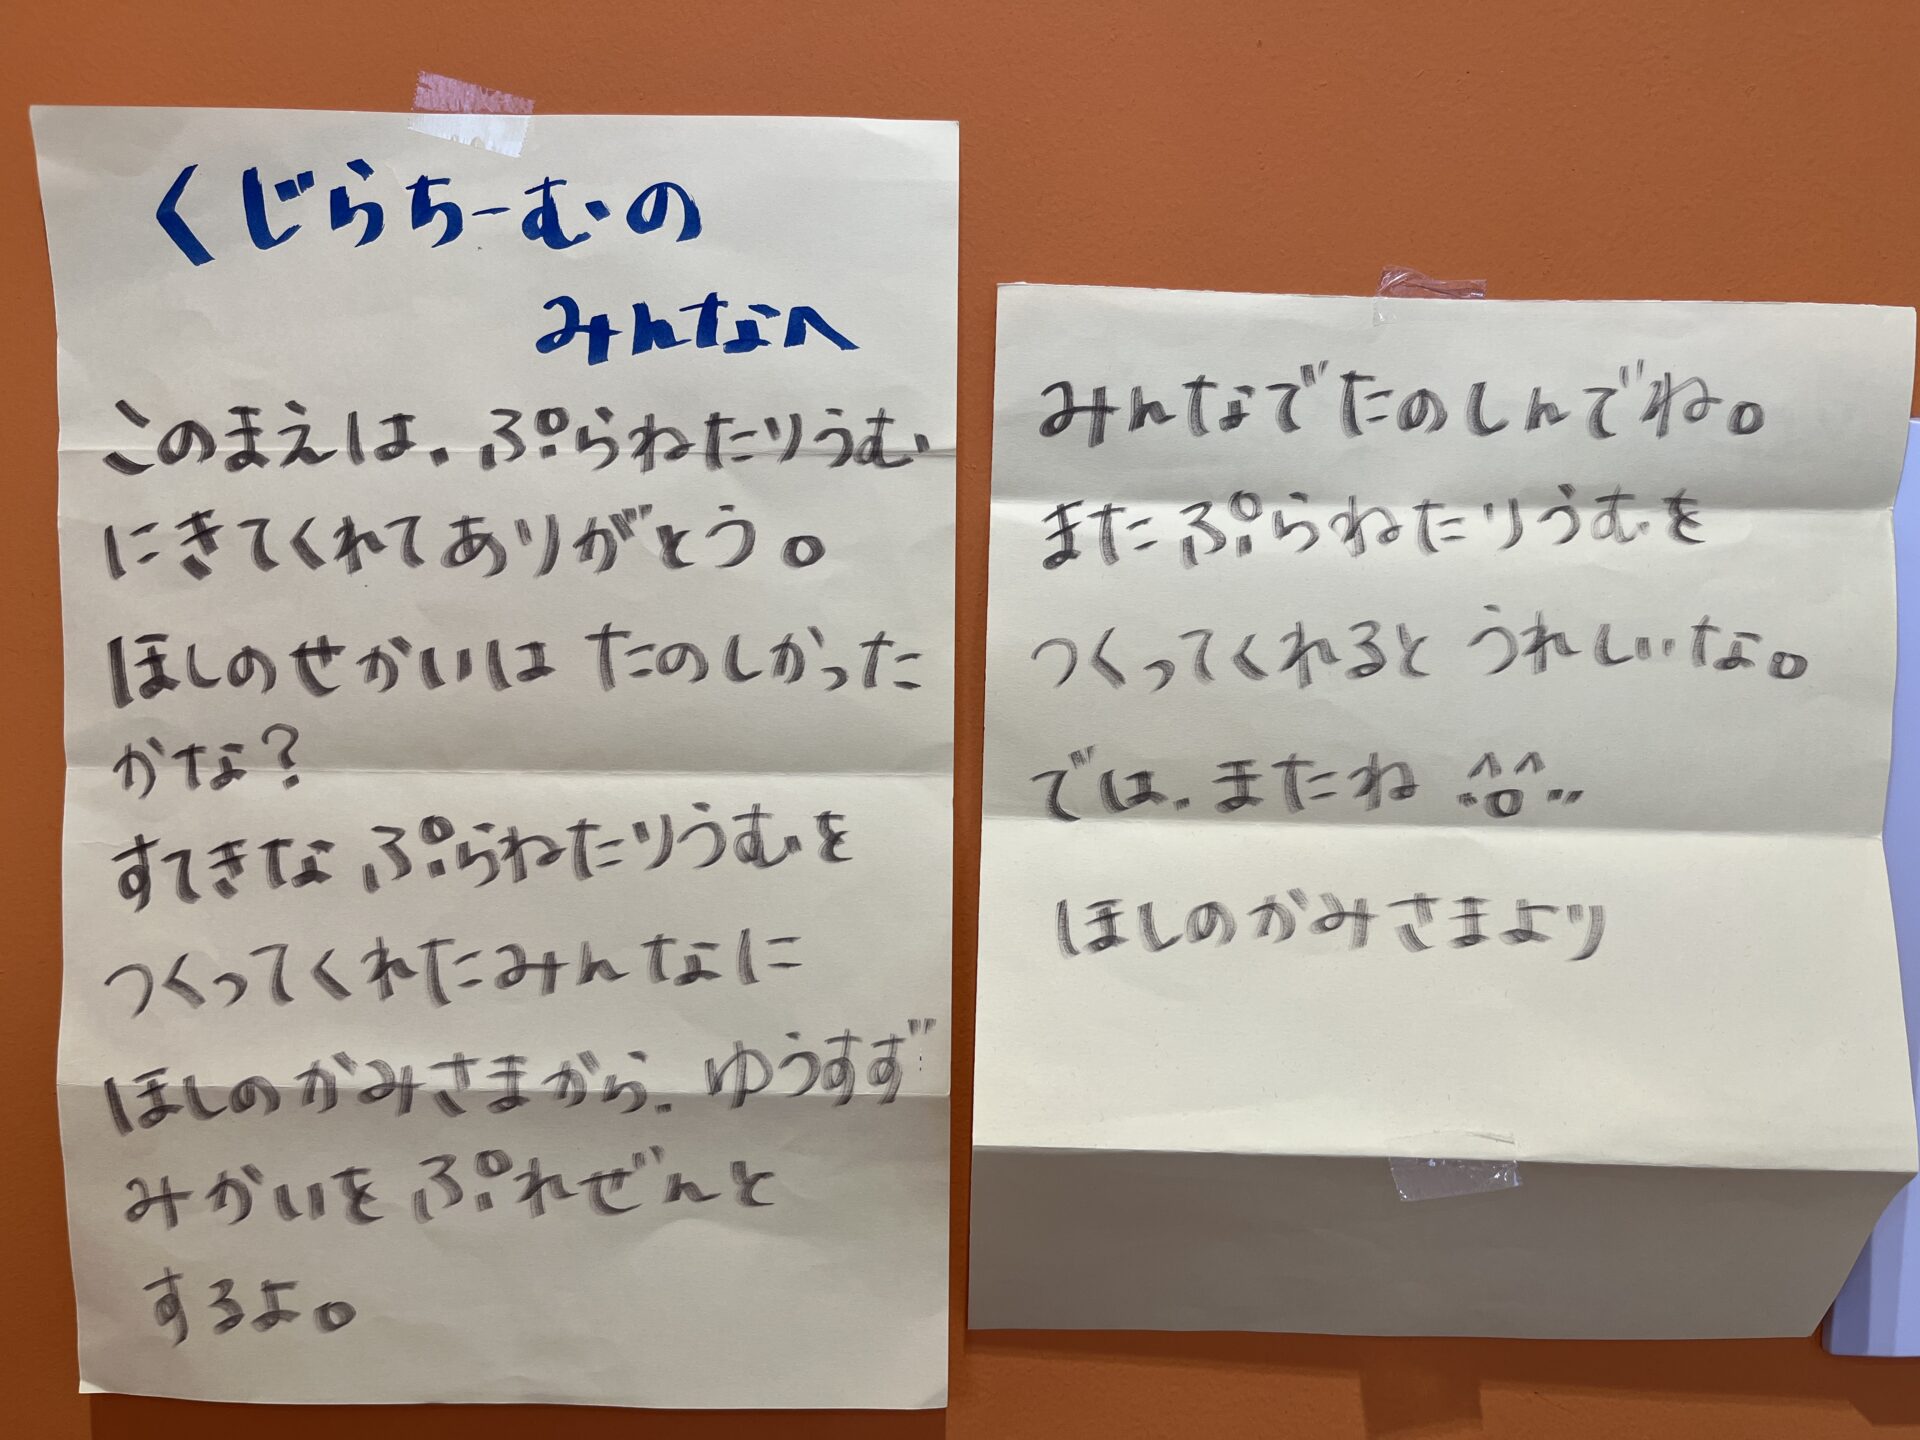 くじらちーむの
みんなへ
このまえは、ぷらねたりうむ
にきてくれてありがとう。
ほしのせかいは たのしかった
かな?
すてきな ぷらねたりうむを
つくってくれたみんなに
ほしのかみさまから、ゆうすず
みかいを ぷれぜんと
するよ。
みんなでたのしんでね。
またぷらねたりうむを
つくってくれると うれしいな。
では、またね ^o^
ほしのかみさまより